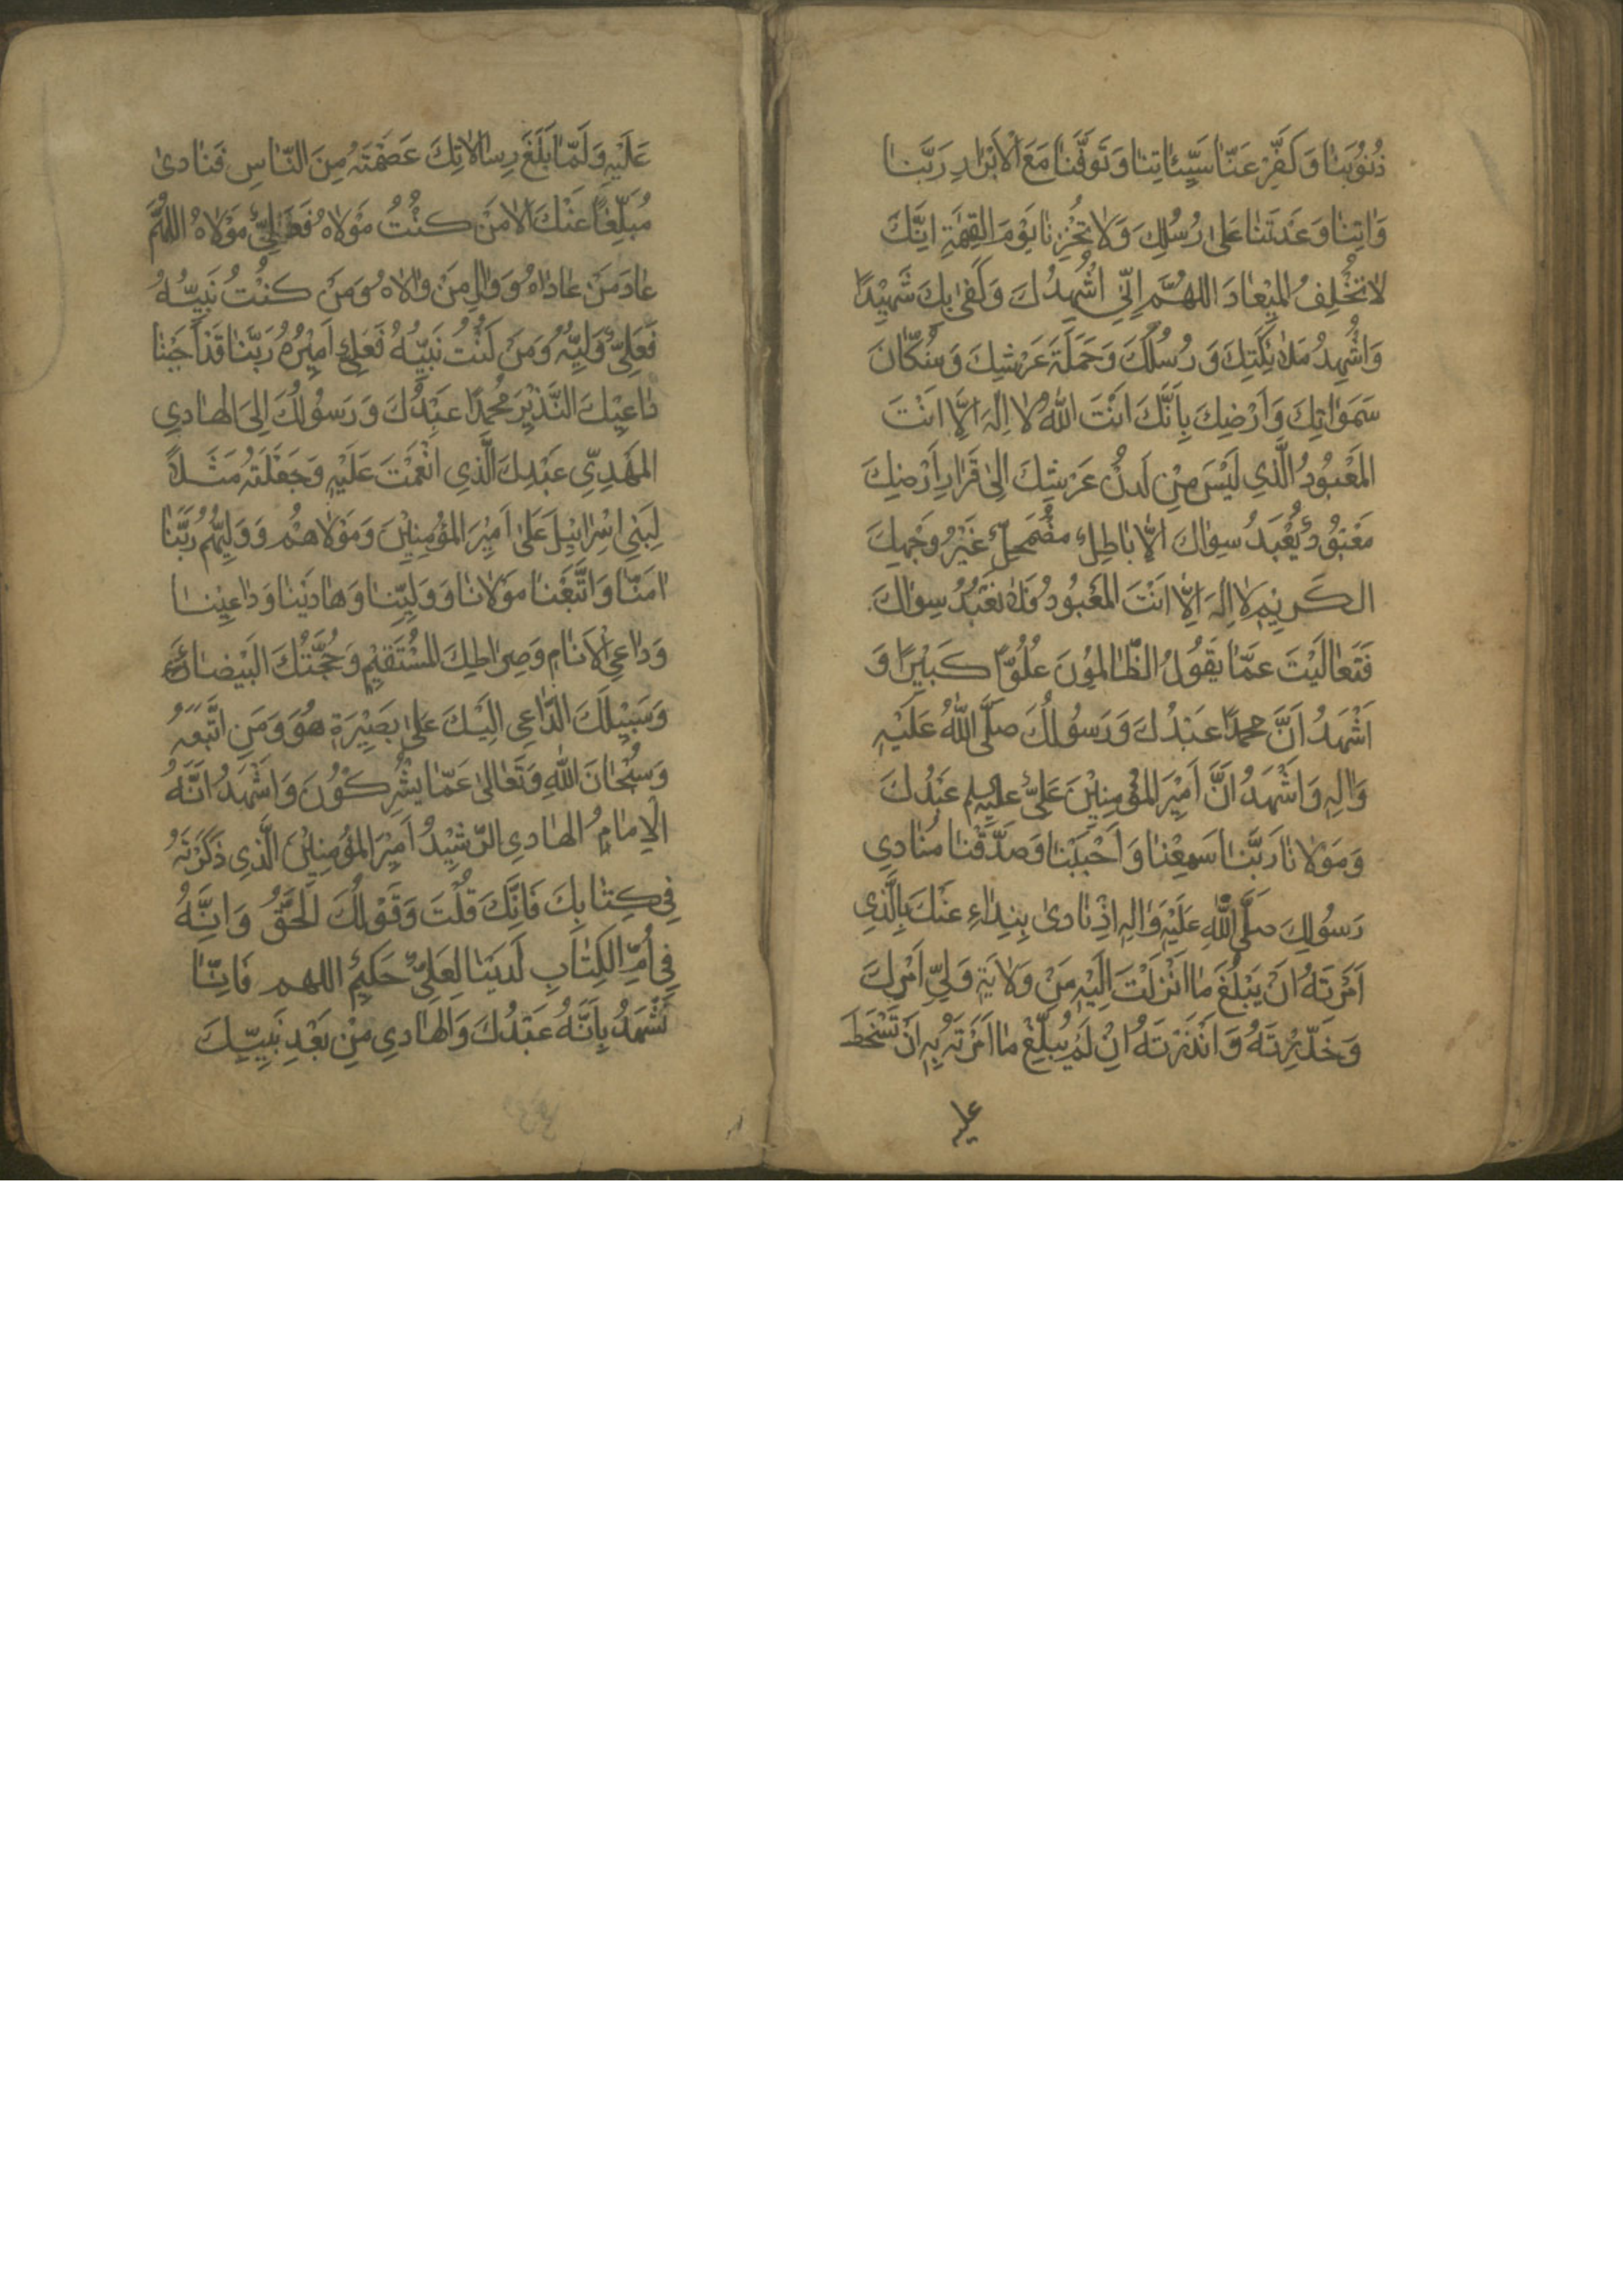 ذُنُوْبَنٰا وَكَفِّرْ عَنّٰا سَيِّئٰاتِنٰا وَتَوَفَّنٰا مَعَ الْاَبْرٰارِ رَبَّنٰا
وَاٰتِنٰا وَعَدْتَنٰا عَلىٰ رُسُلِكَ وَلاٰ تُخْزِنٰا يَوْمَ القِيٰمَةِ اِنَّكَ
لاٰ تُخْلِفُ المِيْعٰادَ اللهُمَّ اِنّي اُشْهِدُكَ وَكَفىٰ بِكَ شَهِيْدًا
وَاُشْهِدُ مَلاٰئِكَتِكَ وَرُسُلَكَ وَحَمَلَةَ عَرْشِكَ وَسُكّٰانَ
سَمَوٰاتِكَ وَاَرْضِكَ بِاَنَّكَ اَنْتَ اللهُ لاٰ اِلٰهَ اِلّٰا اَنْتَ
المَعْبُوْدُ الَّذي لَيْسَ مِنْ لَدُنْ عَرْشِكَ اِلىٰ قَرٰارِ اَرْضِكَ
مَعْبُوْدٌ يُعْبَدُ سِوٰاكَ اِلّٰا بٰاطِلٌ مُضْمَحِلٌّ غَيْرُ وَجْهِكَ
الكَرِيْمِ لاٰ اِلٰهَ اِلّٰا اَنْتَ المَعْبُودُ فَلاٰ نَعْبُدُ سِوٰاكَ
فَتَعٰالَيْتَ عَمّٰا يَقُوْلُ الظّٰالِمُوْنَ عُلُوًّا كَبِيْرًا وَ
اَشْهَدُ اَنَّ محمدًا عَبْدُكَ وَرَسُوْلُكَ صَلَّى اللهُ عَلَيْهِ
وَاٰلِهِ وَاَشْهَدُ اَنَّ اَمِيْرَ المُؤْمِنِيْنَ عَلِيٌّ عليہلم عَبْدُكَ
وَمَوْلاٰنٰا رَبَّنٰا سَمِعْنٰا وَاَجَبْنٰا وَصَدَّقْنٰا مُنٰادِي
رَسُوْلِكَ صَلَّى اللهِ عَلَيْهِ وَاٰلِهِ اِذْ نٰادىٰ بِنِدٰاءٍ عَنْكَ بِالَّذِي
اَمَرْتَهُ اَنْ يَبْلُغَ مٰا اَنْزَلْتَ اِلَيْهِ مَنْ وَلاٰيَةِ وَلِيِّ اَمْرِكَ
وَحَذَّرْتَهُ وَاَنْذَرْتَهُ اِنْ لَمْ يُبَلِّغْ مٰا اَمَرْتَهُ بِهِ اَنْ تَسْخَطَ
عليه
عَلَيْهِ وَلَمّٰا بَلَّغَ رِسٰالاٰتِكَ عَصَمْتَهُ مِنَ النّٰاسِ فَنٰادىٰ
مُبَلِّغًا عَنْكَ اَلاٰ مَنْ كُنْتُ مَوْلاٰهُ فَعَلِيٌّ مَوْلاٰهُ اللهُمَّ
عٰادِ مَنْ عٰادٰاهُ وَوٰالِ مَنْ وٰالاٰهُ وَمَنْ كُنْتُ نَبِيُّهُ
فَعَلِيٌّ وَلِيُّهُ وَمَنْ كُنْتُ نَبِيُّهُ فَعَلِيٌّ اَمِيْرُهُ رَبَّنٰا قَدْ اَجَبْنٰا
دٰاعِيْكَ النَّذِيْرَ مُحَمدًا عَبْدُكَ وَرَسُوْلُكَ اِلىَ الهٰادِي
المَهْدِيِّ عَبْدِكَ الَّذِي اَنْعَمْتَ عَلَيْهِ وَجَعَلْتَهُ مَثَلاً
لِبَنِي اِسْرٰائِيْلَ عَلىٰ اَمِيْرَ المُؤْمِنِيْنَ وَمَوْلاٰهُمْ وَوَلِيُّهُمْ رَبَّنٰا
اٰمَنّٰا وَاتَّبَعْنٰا مَوْلاٰنٰا وَوَلِيِّنٰا وَهٰادَيْنٰا وَدٰاعِيْنٰا
وَدٰاعِيَ الْاَنٰامِ وَصِرٰاطِكَ المُسْتَقِيْمِ وَحُجَّتُكَ البَيْضٰاءِ
وَسَبِيْلَكَ الدّٰاعِي اِلَيْكَ عَلىٰ بَصِيْرَةٍ هُوَ وَمَنِ اتَّبَعَهُ
وَسُبْحٰانَ اللهِ وَتَعٰالىٰ عَمّٰا يُشْرِكُوْنَ وَاَشْهَدُ اَنَّهُ
الْاِمٰامُ الهٰادِي الرَّشِيْدُ اَمِيْرَ المُؤْمِنِيْنَ الَّذِي ذَكَرْتَهُ
فِي كِتٰابِكَ فَاِنَّكَ قُلْتَ وَقَوْلُكَ الحَقُّ وَاِنَّهُ
فِي اُمِّ الكِتٰابِ لَدَيْنٰا لَعَلِيٌّ حَكِيْمٌ اللهم فَاِنّٰا
نَشْهَدُ بِاَنَّهُ عَبْدُكَ وَالهٰادِي مِنْ بَعْدِ نَبِيِّكَ